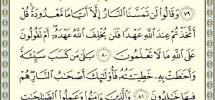 ٧٩ وَقَالُوا۟ لَن تَمَسَّنَا ٱلنَّارُ إِلَّآ أَيَّامًا مَّعْدُودَةً قُلْ
أَتَّخَذْتُمْ عِندَ ٱللَّهِ عَهْدًا فَلَن يُخْلِفَ ٱللَّهُ عَهْدَهُۥٓ أَمْ تَقُولُونَ
عَلَى ٱللَّهِ مَا لَا تَعْلَمُونَ ٨٠ بَلَىٰ مَن كَسَبَ سَيِّئَةً
وَأَحَـٰطَتْ بِهِۦ خَطِيٓـَٔتُهُۥ فَأُو۟لَـٰٓئِكَ أَصْحَـٰبُ ٱلنَّارِ هُمْ